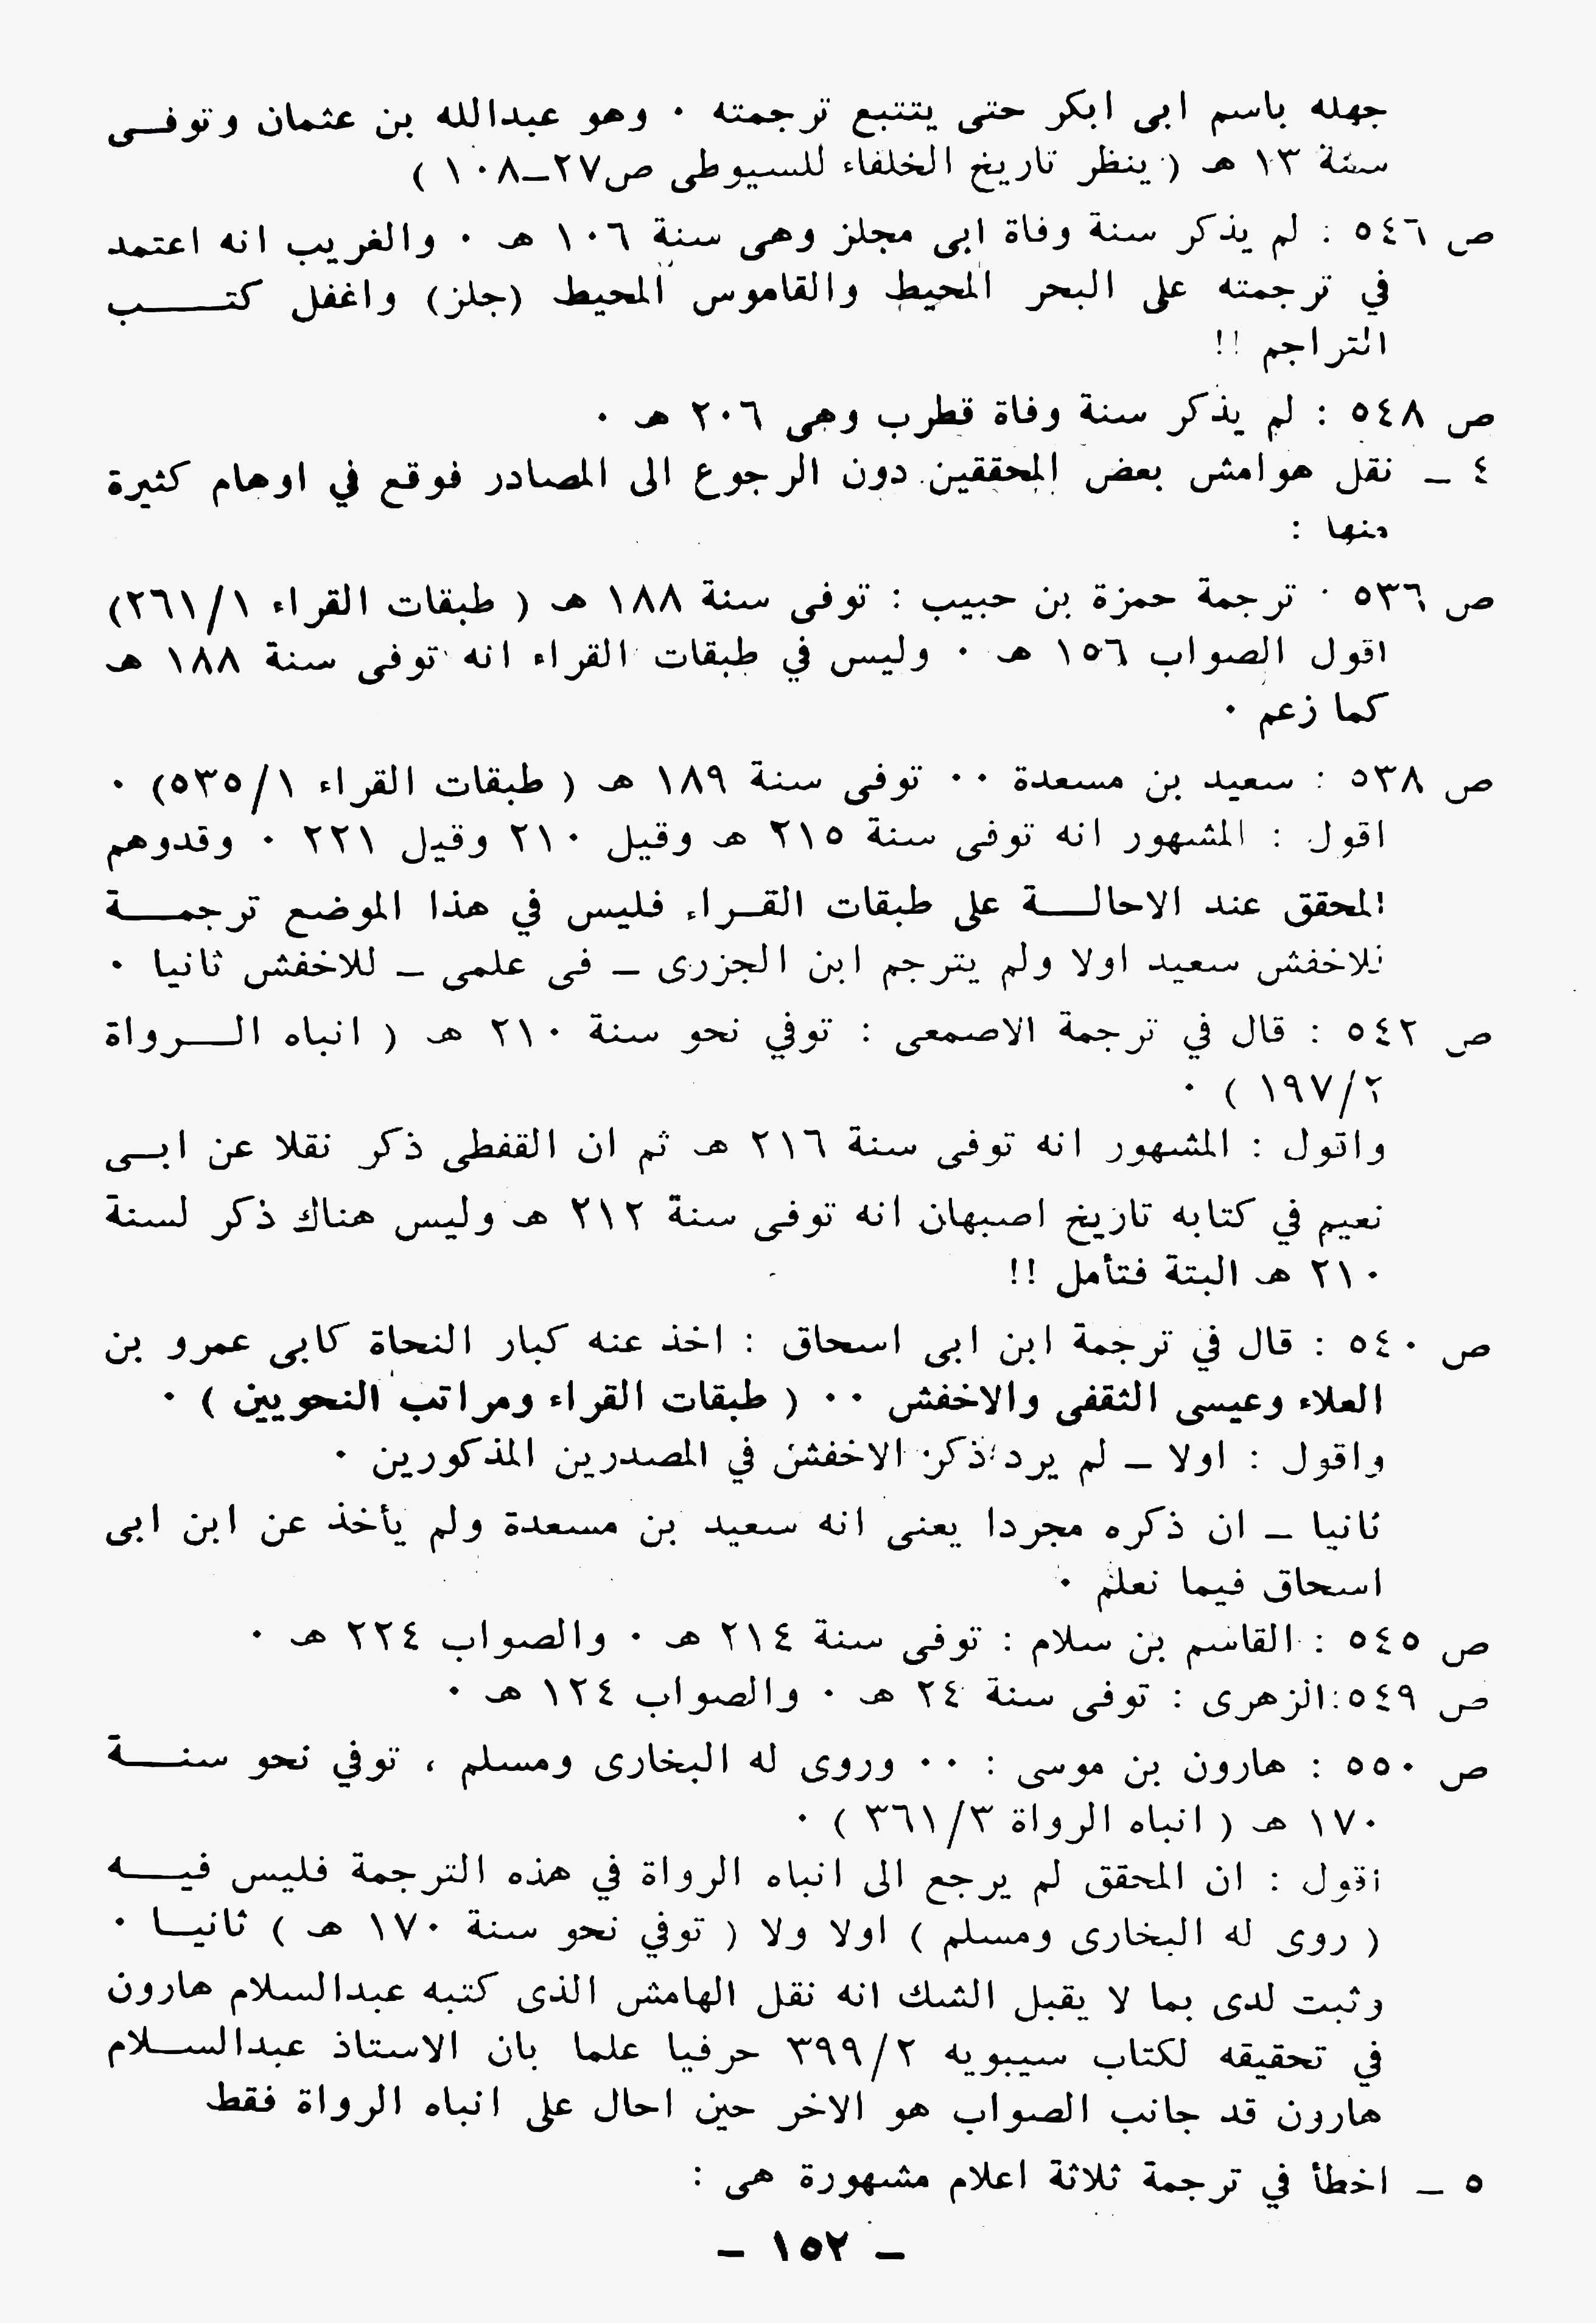 جهله باسم ابى ابكر حتى يتتبع ترجمته ٠ وهو عبدالله بن عثمان وتوفى
سنة ١٣ هـ ( ينظر تاريخ الخلفاء للسيوطى ص٢٧ــ١٠٨ )
ص ٥٤٦ : لم يذكر سنة وفاة ابى مجلز وهى سنة ١٠٦ هـ ٠ والغريب انه اعتمد
في ترجمته على البحر المحيط والقاموس المحيط (جلز) واغفل كتب
التراجم !!
ص ٥٤٨ : لم يذكر سنة وفاة قطرب وهى ٢٠٦ هـ ٠
٤ ــ نقل هوامش بعض المحققين دون الرجوع الى المصادر فوقع في اوهام كثيرة
منها :
ص ٥٣٦ ٠ ترجمة حمزة بن حبيب : توفى سنة ١٨٨ هـ ( طبقات القراء ٢٦١/١)
اقول الصواب ١٥٦ هـ ٠ وليس في طبقات القراء انه توفى سنة ١٨٨ هـ
كما زعم ٠
ص ٥٣٨ : سعيد بن مسعدة ٠٠ توفى سنة ١٨٩ هـ ( طبقات القراء ٥٣٥/١) ٠
اقول : المشهور انه توفى سنة ٢١٥ هـ وقيل ٢١٠ وقيل ٢٢١ ٠ وقدوهم
المحقق عند الاحالة على طبقات القراء فليس في هذا الموضع ترجمة
للاخفش سعيد اولا ولم يترجم ابن الجزرى ــ فى علمى ــ للاخفش ثانيا ٠
ص ٥٤٢ : قال في ترجمة الاصمعى : توفي نحو سنة ٢١٠ هـ ( انباه الرواة
١٩٧/٢ ) ٠
واقول : المشهور انه توفى سنة ٢١٦ هـ ثم ان القفطى ذكر نقلا عن ابى
نعيم في كتابه تاريخ اصبهان انه توفى سنة ٢١٢ هـ وليس هناك ذكر لسنة
٢١٠ هـ البتة فتأمل !!
ص ٥٤٠ : قال في ترجمة ابن ابى اسحاق : اخذ عنه كبار النحاة كابى عمرو بن
العلاء وعيسى الثقفى والاخفش ٠٠ ( طبقات القراء ومراتب النحويين ) ٠
واقول : اولا ــ لم يرد ذكر الاخفش في المصدرين المذكورين ٠
ثانيا ــ ان ذكره مجردا يعنى انه سعيد بن مسعدة ولم يأخذ عن ابن ابى
اسحاق فيما نعلم ٠
ص ٥٤٥ : القاسم بن سلام : توفى سنة ٢١٤ هـ ٠ والصواب ٢٢٤ هـ ٠
ص ٥٤٩ :الزهرى : توفى سنة ٢٤ هـ ٠ والصواب ١٢٤ هـ ٠
ص ٥٥٠ : هارون بن موسى : ٠٠ وروى له البخارى ومسلم ، توفي نحو سنة
١٧٠ هـ ( انباه الرواة ٣٦١/٣ ) ٠
اقول : ان المحقق لم يرجع الى انباه الرواة في هذه الترجمة فليس فيه
( روى له البخارى ومسلم ) اولا ولا ( توفي نحو سنة ١٧٠ هـ ) ثانيا ٠
وثبت لدى بما لا يقبل الشك انه نقل الهامش الذى كتبه عبدالسلام هارون
في تحقيقه لكتاب سيبويه ٣٩٩/٢ حرفيا علما بان الاستاذ عبدالسلام
هارون قد جانب الصواب هو الاخر حين احال على انباه الرواة فقط
٥ ــ اخطأ في ترجمة ثلاثة اعلام مشهورة هى :
ــ ١٥٢ ــ